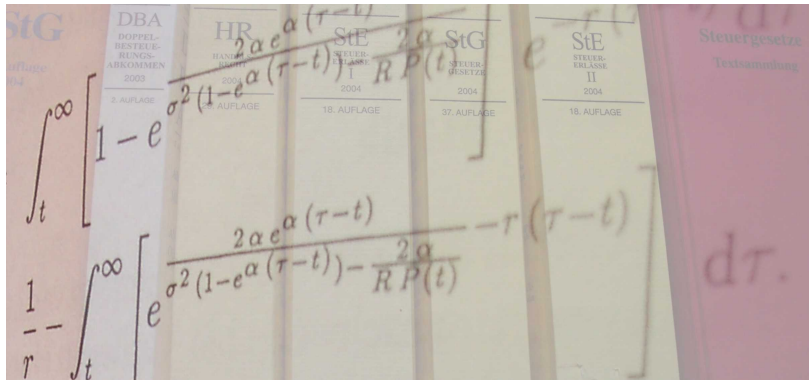 StG
Auflage
2004
DBA
DOPPEL-
BESTEUE-
RUNGS-
ABKOMMEN
2003
2. AUFLAGE
HR
2004
AUFLAGE
StE
STEUER-
ERLÄSSE
I
2004
18. AUFLAGE
StG
STEUER-
GESETZE
2004
37. AUFLAGE
StE
STEUER-
ERLÄSSE
II
2004
18. AUFLAGE
Steuergesetze
Textsammlung
∫_t^∞ [ 1 − e^{\frac{2 α e^{α (τ−t)}}{σ^2 (1−e^{α (τ−t)}) − \frac{2 α}{R P(t)}}} ] e^{−r (τ dτ
\frac{1}{r} − ∫_t^∞ [ e^{\frac{2 α e^{α (τ−t)}}{σ^2 (1−e^{α (τ−t)}) − \frac{2 α}{R P(t)}} −r (τ−t)} ] dτ.